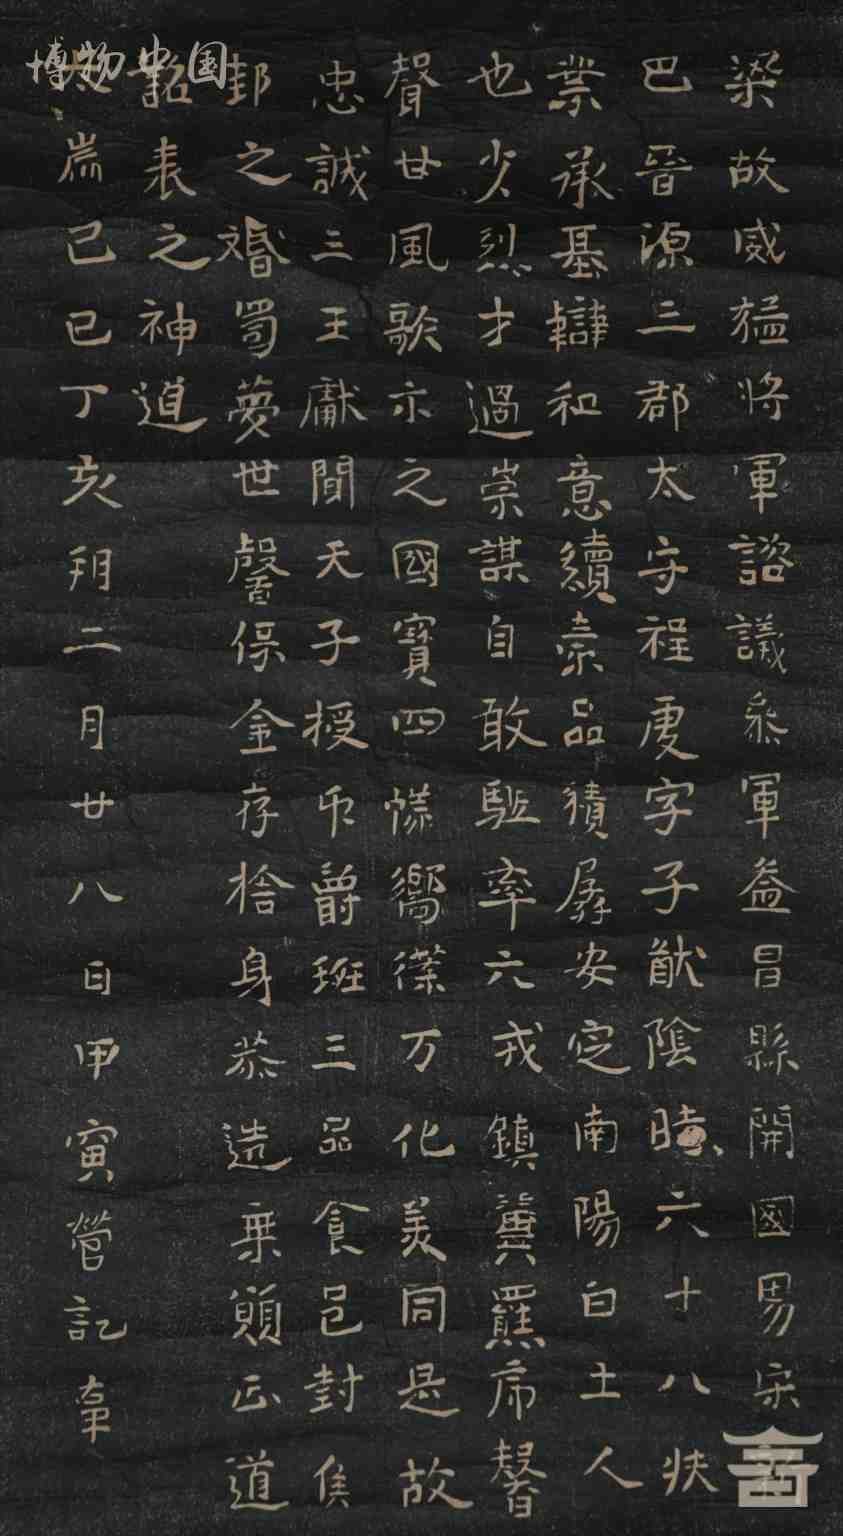 梁故威猛將軍諮議叅軍益昌縣開國男宋新
巴晉源三郡太守程虔字子猷陰六十八
業承基和意續素品積孱安定南陽白土人
也少烈才過崇謀自敢駈率六戎鎮冀羆席馨
聲世風歌示之國寶四嚮万化美同是故
忠誠三王獻聞天子授爵班三品食邑封侯
之婚蜀夢世馨保金存捨身恭造乗願正道
銘表之神道
歲己巳丁亥朔二月廿八日甲寅營記
博物中国